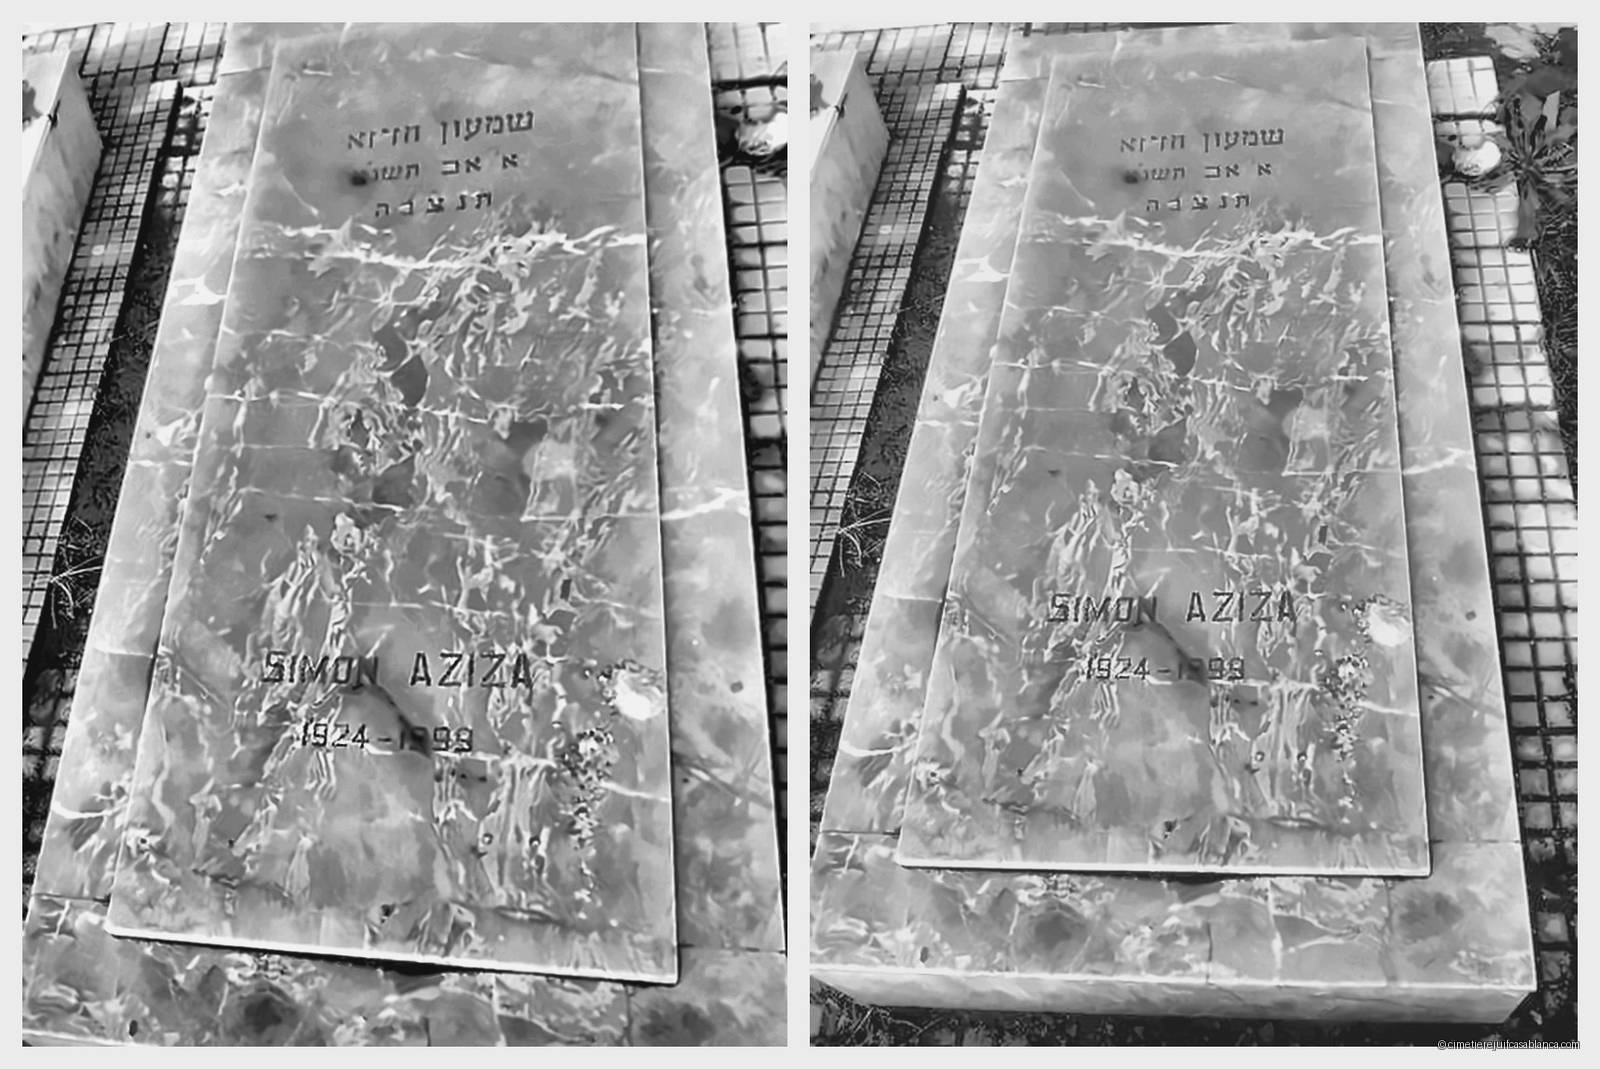 שמעון חזיזא
א אב
תנצבה
SIMON AZIZA
1924-1999
שמעון חזיזא
א אב
תנצבה
SIMON AZIZA
1924-1999
©cimetierejuifcasablanca.com